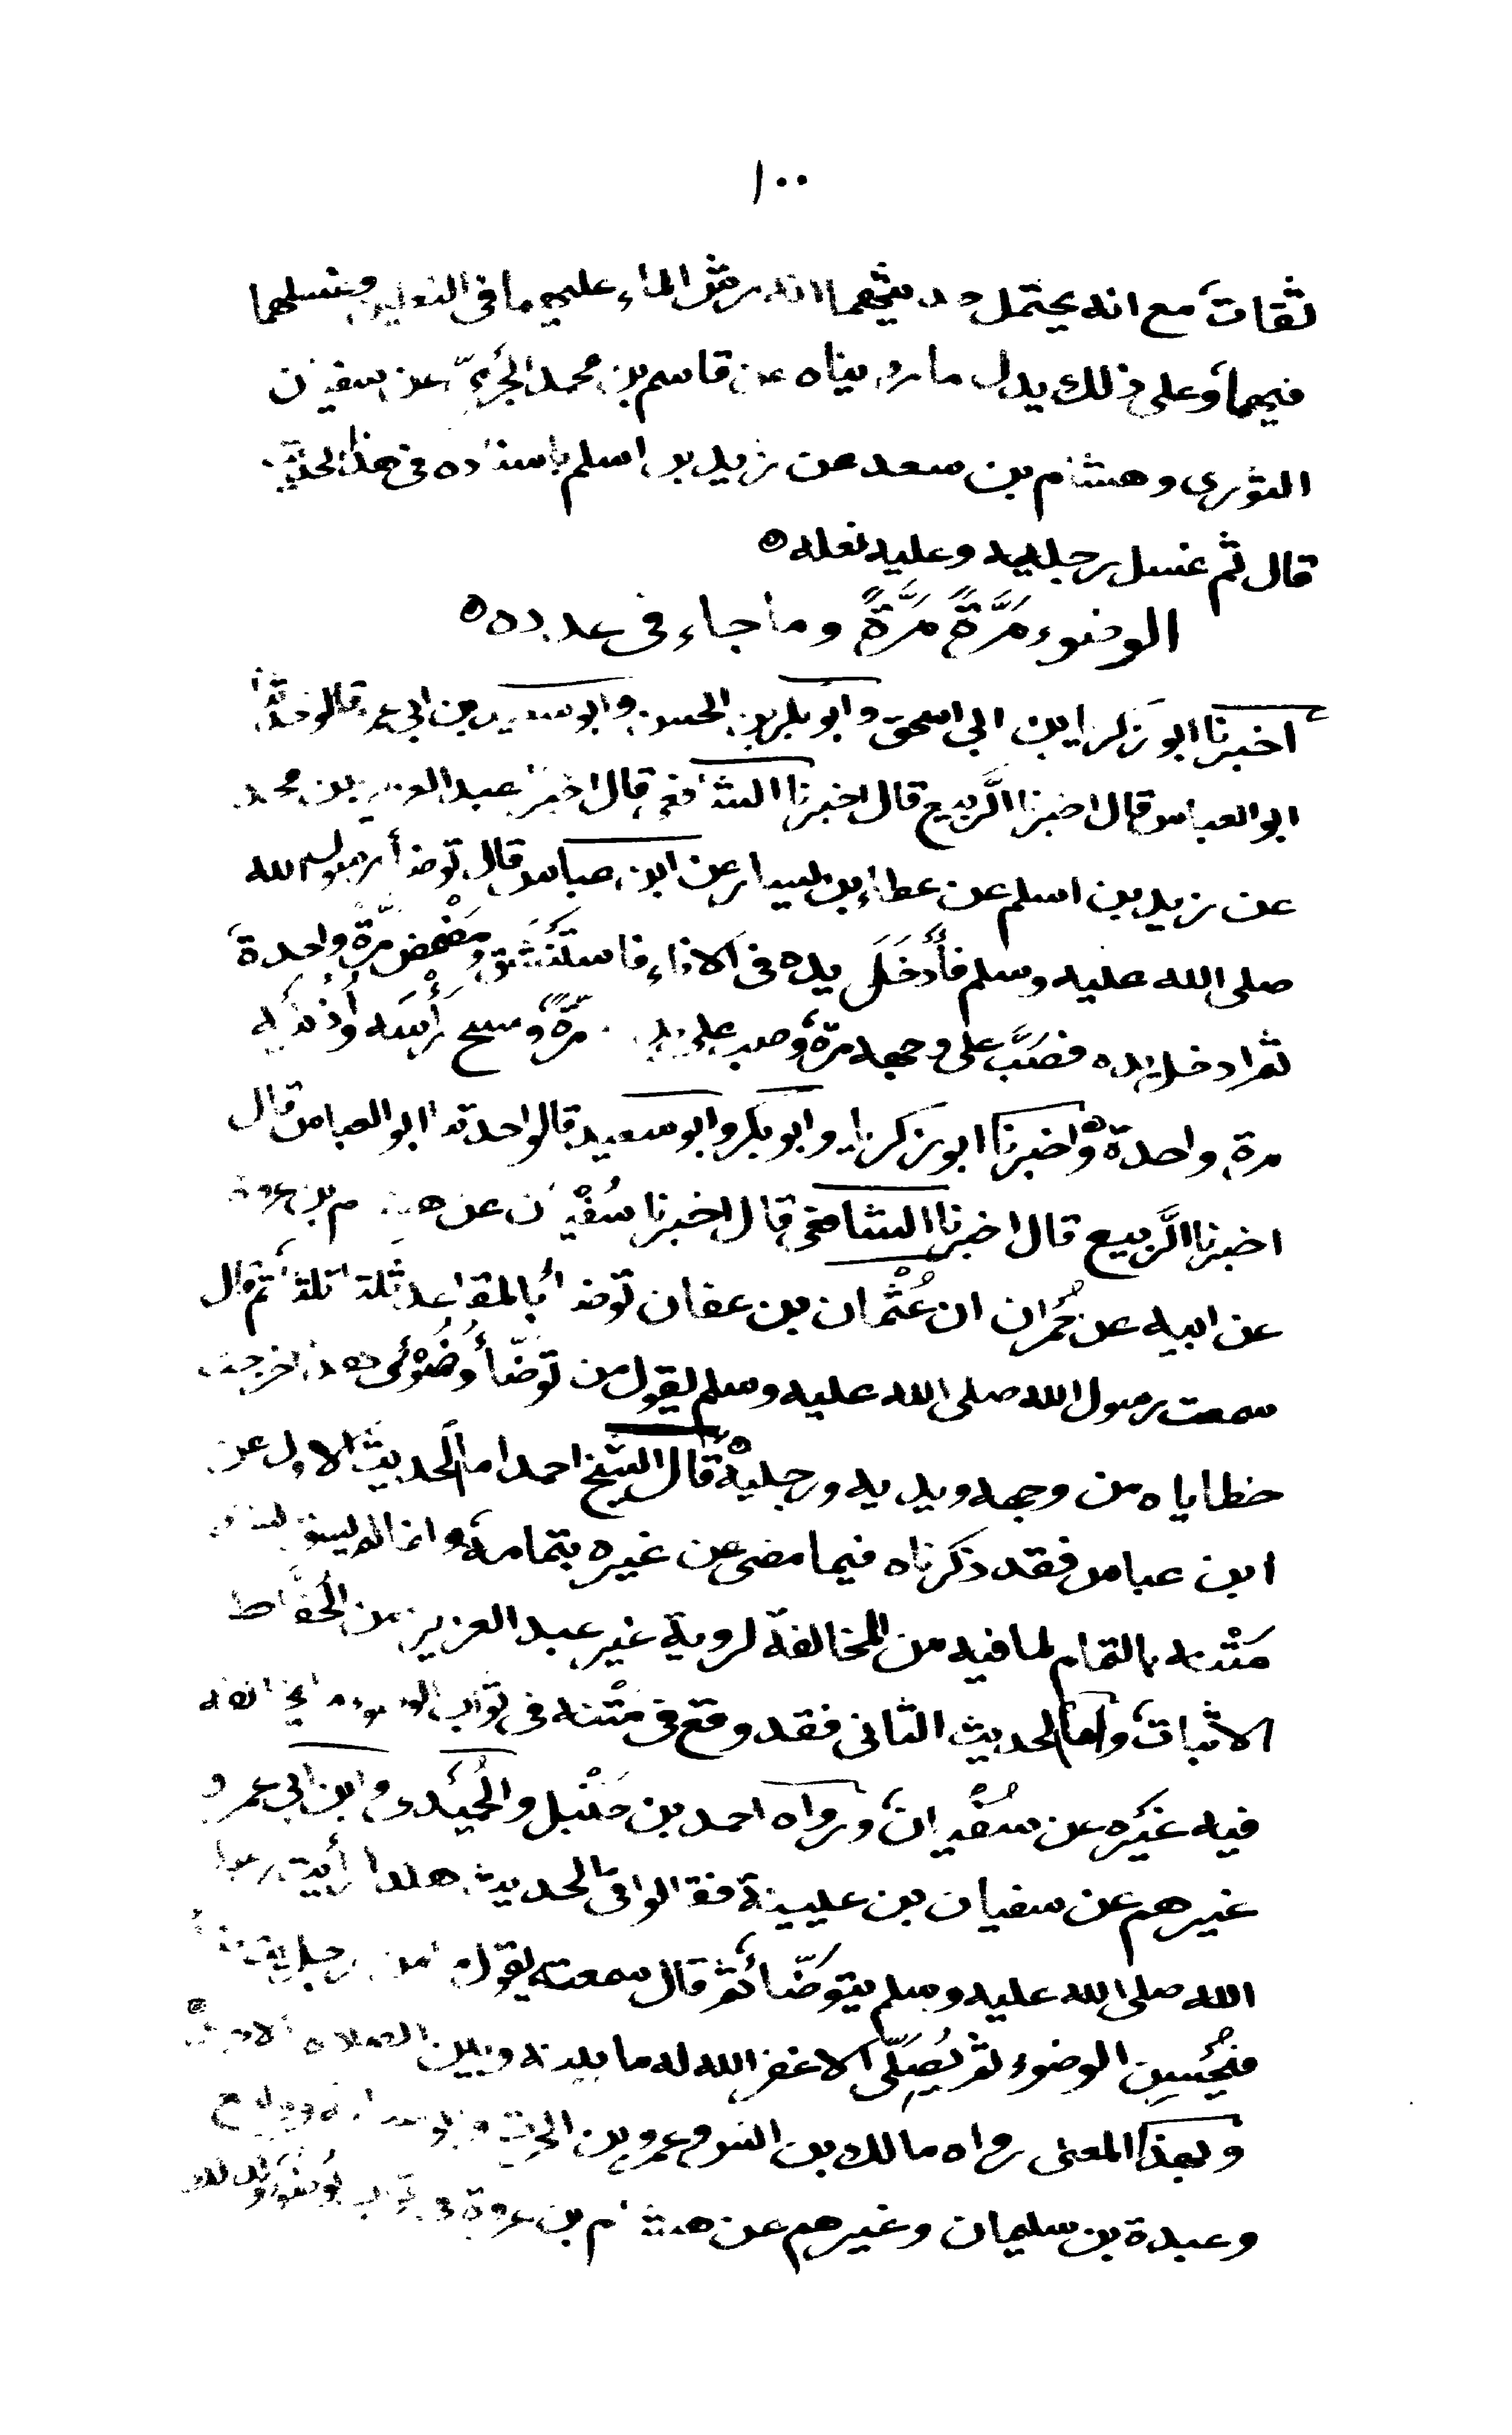 ١٠٠
ثقات، مع انه يحتمل حديثهما انه رش الماء عليهما فى النعلين وغسلهما
فيهما، وعلى ذلك يدل ما رويناه عن قاسم بن محمد الجَرْمىّ عن سفين
الثورى وهشام بن سعد عن زيد بن اسلم باسناده فى هذا الحديث
قال ثم غسل رجليه وعليه نعله ه
الوضوء مَرَّةً مَرَّةً وما جاء فى عدده ه
اخبرنا ابو زكريا بن ابى اسحق وابو بكر بن الحسن وابو سعيد بن ابى عمرو قالوا حدثنا
ابو العباس قال اخبرنا الرَّبيع قال اخبرنا الشافعى قال اخبرنا عبد العزيز بن محمد
عن زيد بن اسلم عن عطاء بن يسار عن ابن عباس قال توضأ رسول الله
صلى الله عليه وسلم فأَدْخَلَ يده فى الاناء فاستَنْشَق ومَضْمَض مَرّةً واحدة
ثم ادخل يده فصَبَّ على وجهه مرة، وصب على يديه مَرّةً، ومسح رَأْسَه وأُذُنَيْه
مرة واحدة ه واخبرنا ابو زكريا وابو بكر وابو سعيد قالوا حدثنا ابو العباس قال
اخبرنا الرَّبيع قال اخبرنا الشافعى قال اخبرنا سُفْيٰن عن هشام بن عروة
عن ابيه عن حُمْران ان عُثْمان بن عفان توضأ بالمقاعد ثلثا ثلثا، ثم قال
سمعت رسول الله صلى الله عليه وسلم يقول من توضّأ وُضُوْئى هذا خرجت
خطاياه من وجهه ويديه ورجليْه ه قال الشيخ احمد اما الحديث الاول عن
ابن عباس فقد ذكرناه فيما مضى عن غيره بتمامه، وانما لم يسق
مَتْنه بالتمام لما فيه من المخالفة لروية غير عبد العزيز من الحُفّاظ
الاثبات، واما الحديث الثانى فقد وقع فى مَتْنه فى ثواب الوضوء ما يخالفه
فيه غَيْره عن سُفْيان، ورواه احمد بن حَنْبل والحُمَيْدى وابن ابى عمر و
غيرهم عن سفيان بن عيينة فقالوا فى الحديث هكذا رأيت رسول
الله صلى الله عليه وسلم يتوضّأ، ثم قال سمعته يقول ما من رجل يتوضأ
فيُحْسِن الوضوء ثم يُصَلّى الا غفر الله له ما بينه وبين الصلاة الاخرى
وبهذا المعنى رواه مالك بن انس وعمرو بن الحرث وابو اسامة ووكيع
وعبدة بن سليمان وغيرهم عن هشام بن عروة فى ثواب